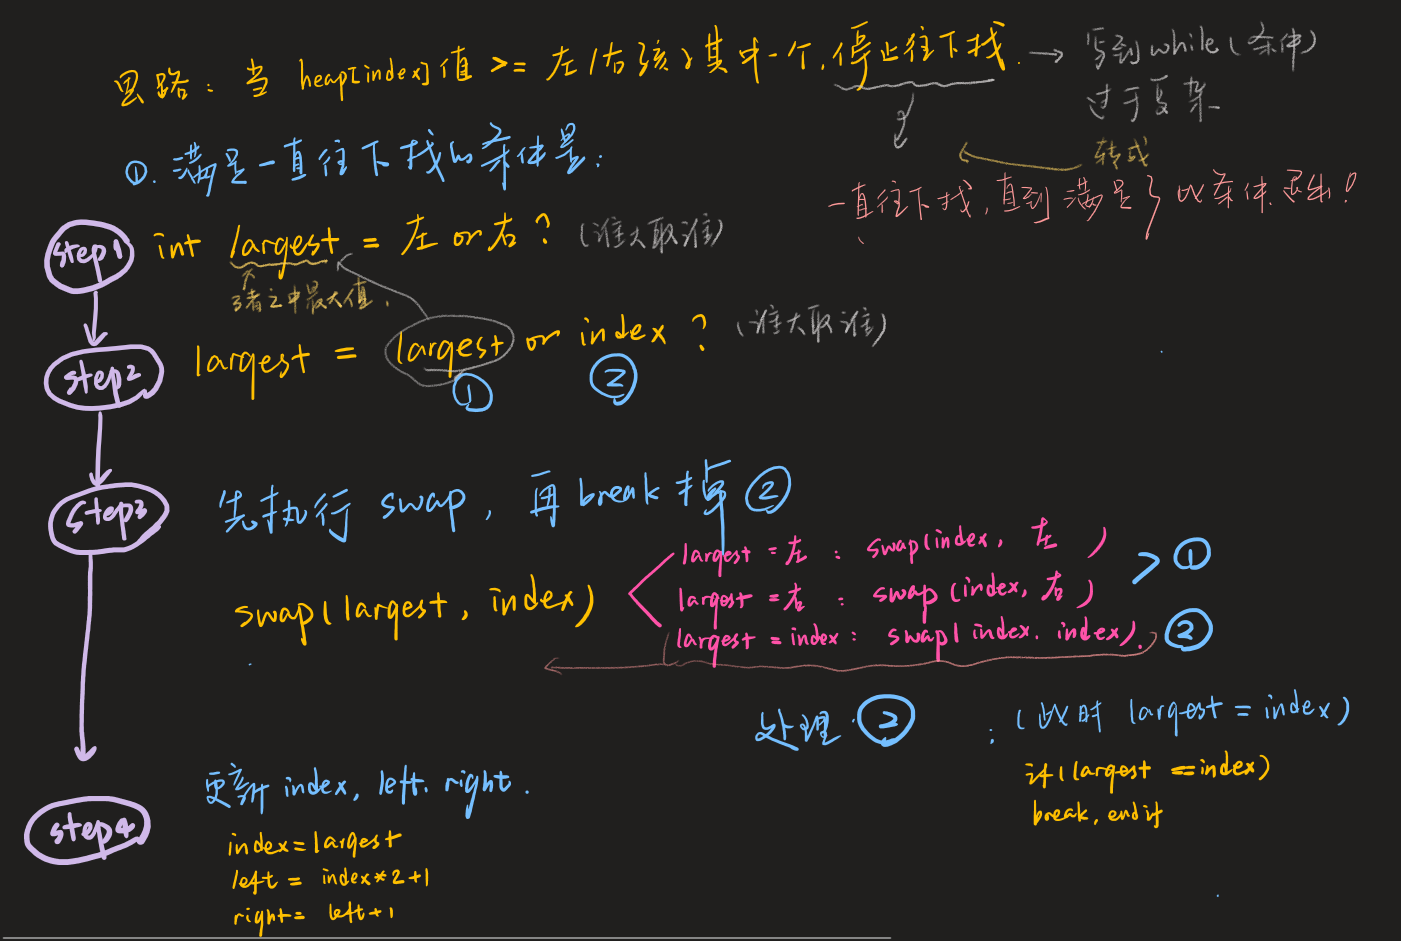 思路：当 heap[index] 值 >= 左/右孩子其中一个，停止往下找. → 写到while(条件)
过于复杂
转成
一直往下找，直到满足了此条件退出！
①. 满足一直往下找的条件是：
step1
int largest = 左 or 右？(谁大取谁)
3者之中最大值.
step2
largest = largest or index ? (谁大取谁)
① ②
step3
先执行 swap，再break掉②
swap(largest, index)
largest = 左 : swap(index, 左)
largest = 右 : swap(index, 右)
> ①
largest = index : swap(index. index). ②
处理 ② : (此时 largest = index)
if(largest == index)
break, endif
step4
更新 index, left. right.
index = largest
left = index*2+1
right = left+1